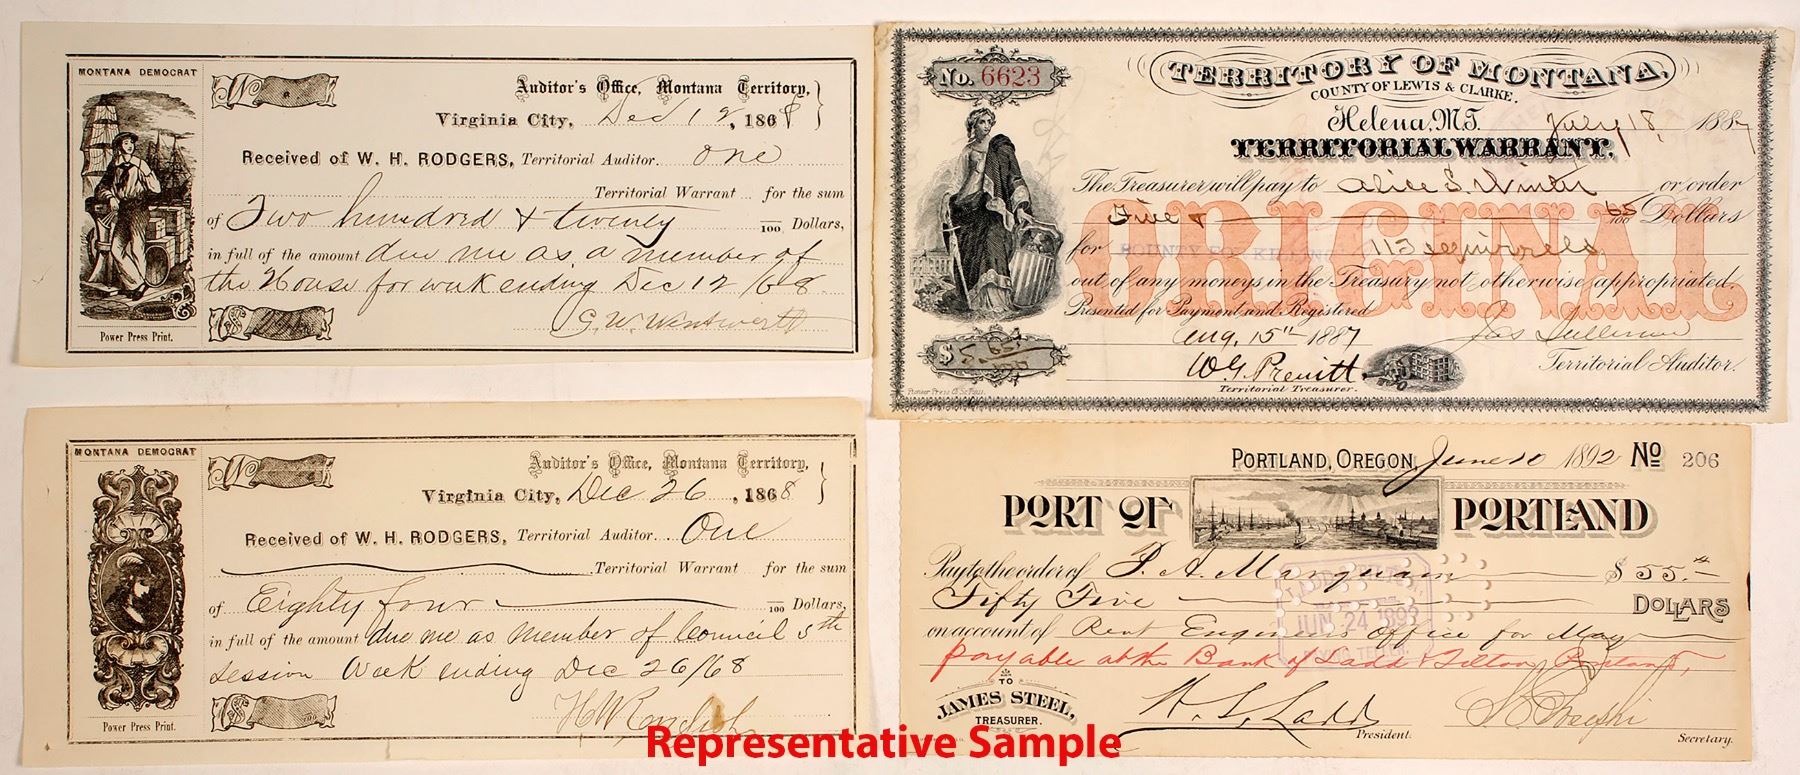 MONTANA DEMOCRAT
Auditor's Office, Montana Territory,
Virginia City, Dec 12, 1868
Received of W. H. RODGERS, Territorial Auditor. One
Territorial Warrant for the sum
of Two hundred & twenty /100 Dollars,
in full of the amount due me as a member of
the House for week ending Dec 12/68
G. W. Wentworth
Power Press Print.
No. 6623
TERRITORY OF MONTANA,
COUNTY OF LEWIS & CLARKE.
Helena, M.T. July 18, 1887
TERRITORIAL WARRANT.
The Treasurer will pay to Alice S. Winter or order
Five & 65/100 Dollars
for BOUNTY FOR KILLING 113 squirrels
ORIGINAL
out of any moneys in the Treasury not otherwise appropriated.
Presented for Payment and Registered
Aug. 15th 1887 Jas Sullivan
$5.65/100
W. G. Preuitt Territorial Auditor.
Territorial Treasurer.
MONTANA DEMOCRAT
Auditor's Office, Montana Territory,
Virginia City, Dec 26, 1868
Received of W. H. RODGERS, Territorial Auditor. One
Territorial Warrant for the sum
of Eighty four /100 Dollars,
in full of the amount due me as member of Council 5th
session Week ending Dec 26/68
Power Press Print.
PORTLAND, OREGON, June 10 1892 No 206
PORT OF PORTLAND
Pay to the order of P. A. Marquam $55.
Fifty Five DOLLARS
on account of Rent Engineers Office for May
payable at the Bank of Ladd & Tilton Portland,
JUN 24 1892
PAYING TELLER.
TO
JAMES STEEL,
TREASURER.
W. S. Ladd
President.
Secretary.
Representative Sample